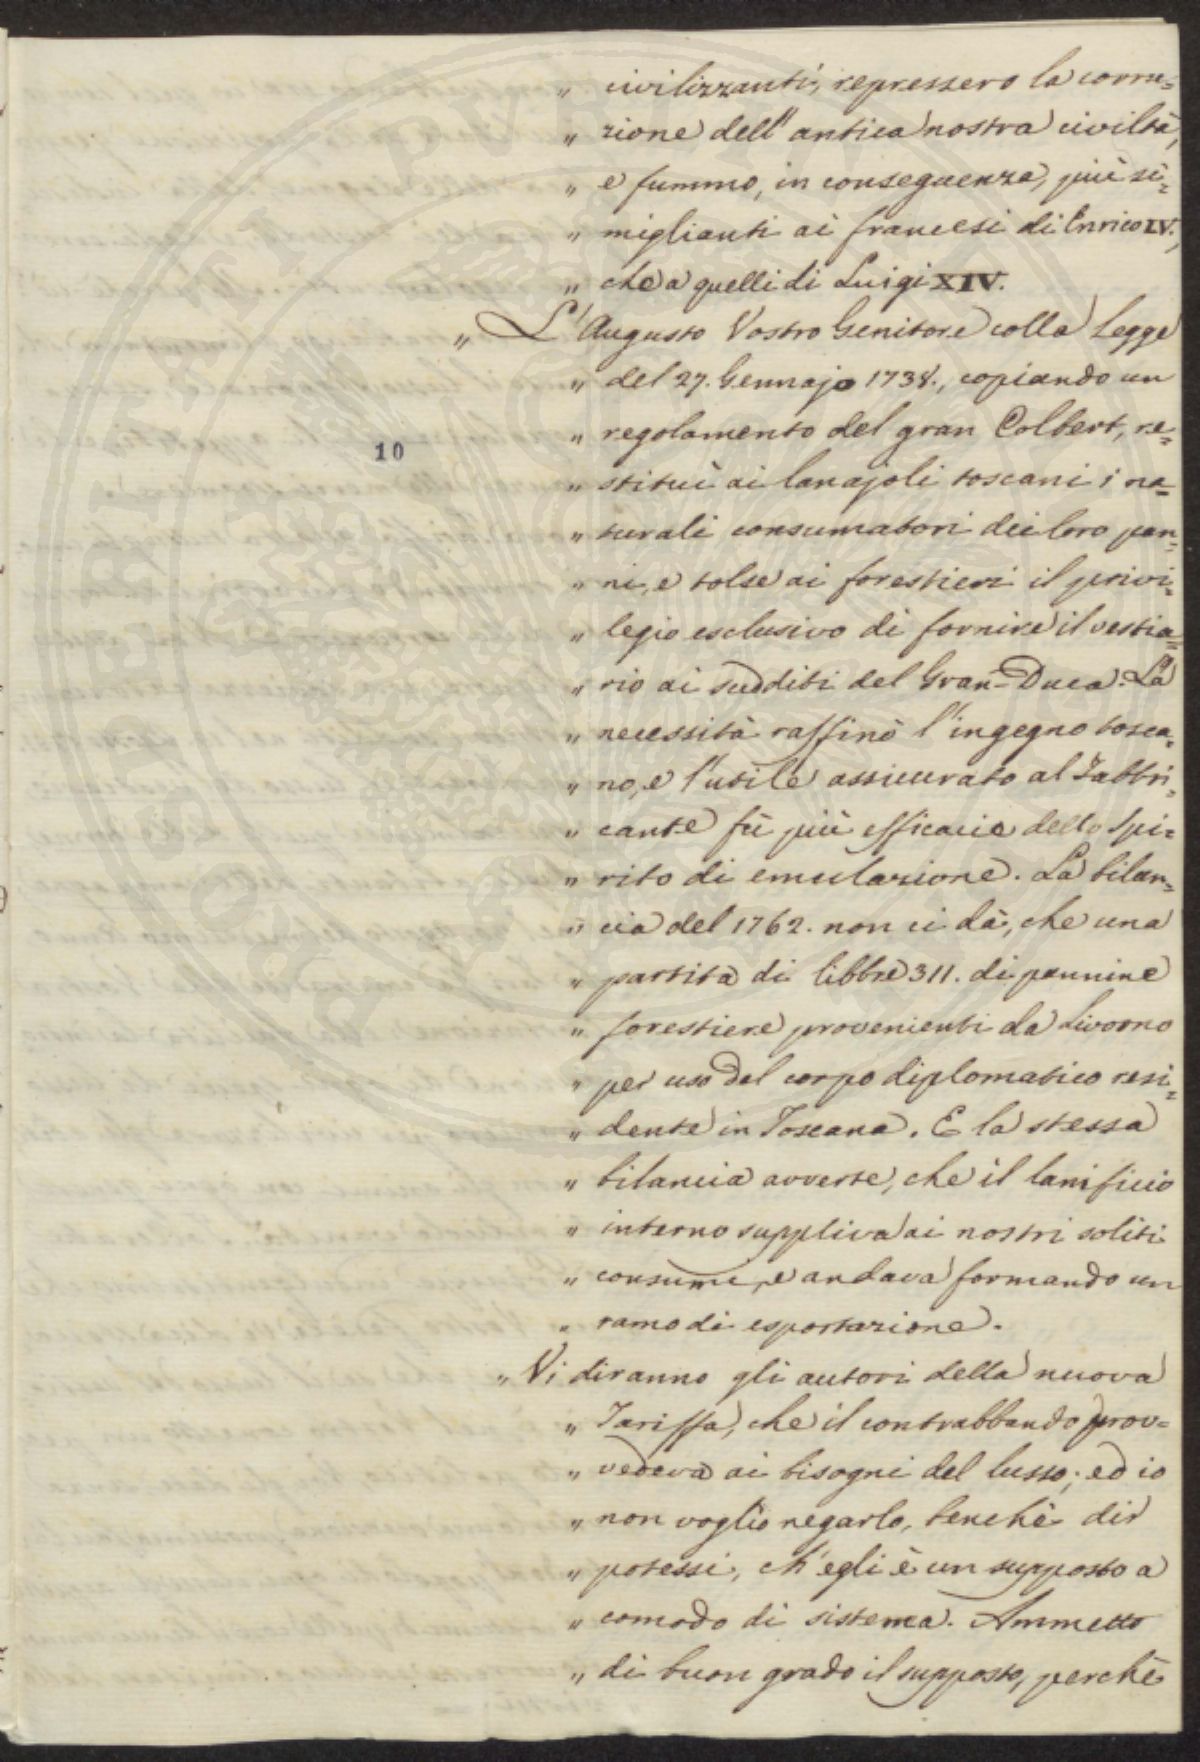 „ civilizzanti, repressero la corru=
„ zione dell'antica nostra civiltà,
„ e fummo, in conseguenza, più si=
„ miglianti ai francesi di Enrico IV.,
„ che a quelli di Luigi XIV.
„ L'Augusto Vostro Genitore colla Legge
„ del 27. Gennajo 1738., copiando un
„ regolamento del gran Colbert, re=
10
„ stituì ai lanajoli toscani i na=
„ turali consumatori dei loro pan=
„ ni, e tolse ai forestieri il privi=
„ legio esclusivo di fornire il vestia=
„ rio ai sudditi del Gran-Duca. La
„ necessità raffinò l'ingegno tosca=
„ no, e l'utile assicurato al Fabbri=
„ cante fù più efficacie dello Spi=
„ rito di emulazione. La bilan=
„ cia del 1762. non ci dà, che una
„ partita di libbre 311. di pannine
„ forestiere provenienti da Livorno
„ per uso del corpo diplomatico resi=
„ dente in Toscana. E la stessa
„ bilancia avverte, che il lanificio
„ interno suppliva ai nostri soliti
„ consumi, e andava formando un
„ ramo di esportazione.
„ Vi diranno gli autori della nuova
„ Tariffa, che il contrabbando prov=
„ vedeva ai bisogni del lusso; ed io
„ non voglio negarlo, benchè dir
„ potessi, ch'egli è un supposto a
„ comodo di sistema. Ammetto
„ di buon grado il supposto, perchè